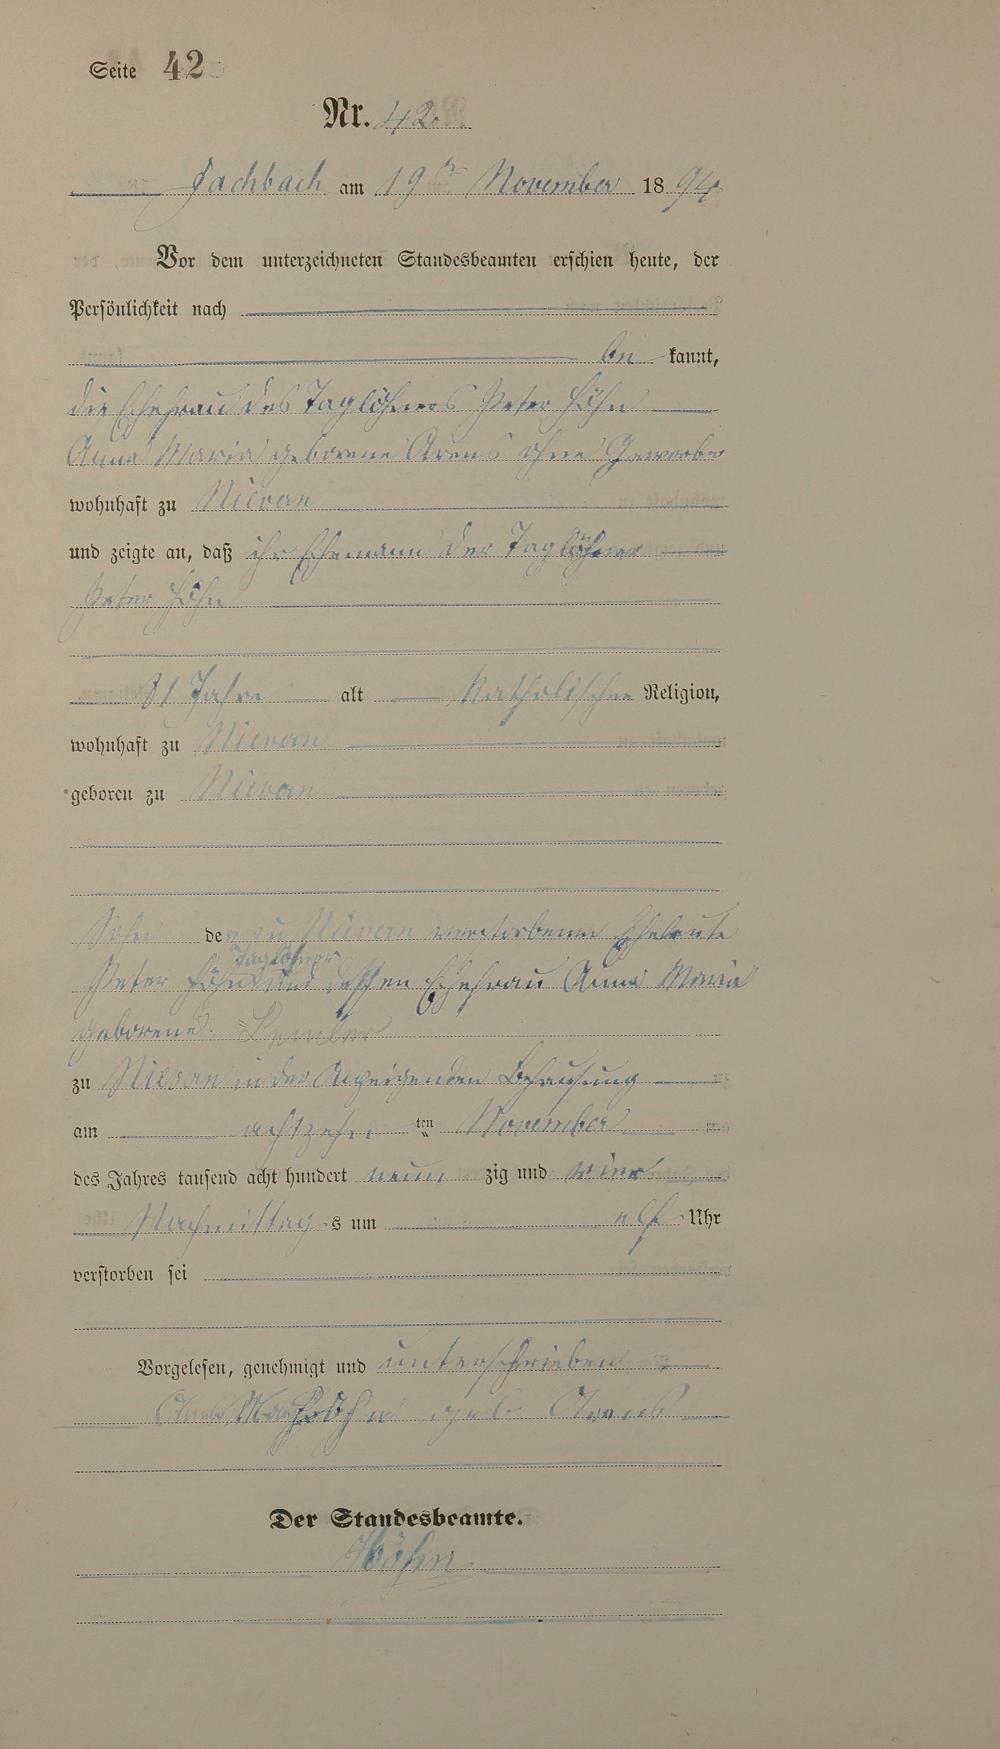 Seite 42
Nr. 42.
Fachbach am 19ten November 1894
Vor dem unterzeichneten Standesbeamten erschien heute, der
Persönlichkeit nach
be kannt,
die Ehefrau des Taglöhners Peter Höhn
Anna Maria geborene Arens ohne Gewerbe
wohnhaft zu Nievern
und zeigte an, daß ihr Ehemann der Taglöhner
Peter Höhn
Jahre alt katholischer Religion,
wohnhaft zu Nievern
geboren zu Nievern
Sohn der zu Nievern verstorbenen Eheleute
Taglöhner
Peter Höhn und dessen Ehefrau Anna Maria
geborene
zu Nievern in der Behausung
am achtzehn ten November
des Jahres tausend acht hundert neun zig und vier
Nachmittag s um elf Uhr
verstorben sei
Vorgelesen, genehmigt und unterschrieben
Anna Höhn geb Arens
Der Standesbeamte.
Höhn